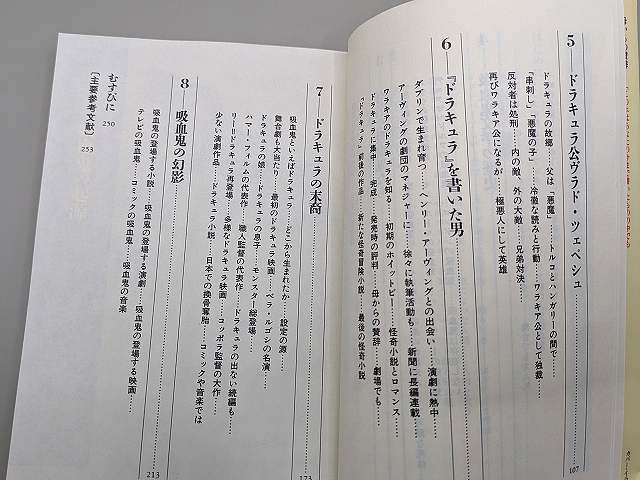 5—ドラキュラ公ヴラド・ツェペシュ
107
ドラキュラの故郷……父は「悪魔」……トルコとハンガリーの間で……
「串刺し」「悪魔の子」……冷徹な読みと行動……ワラキア公として独裁……
反対者は処刑……内の敵、外の大敵……兄弟対決……
再びワラキア公になるが……極悪人にして英雄
6—『ドラキュラ』を書いた男
ダブリンで生まれ育つ……ヘンリー・アーヴィングとの出会い……演劇に熱中……
アーヴィングの劇団のマネジャーに……徐々に執筆活動も……新聞に長編連載……
ワラキアのドラキュラを知る……初期のホイットビー……怪奇小説とロマンス……
ドラキュラに集中……完成……発売時の評判……母からの賛辞……劇場でも……
『ドラキュラ』前後の作品……新たな怪奇冒険小説……最後の怪奇小説
7—ドラキュラの末裔
173
吸血鬼といえばドラキュラ……どこから生まれたか……設定の源……
舞台劇も大当たり……最初のドラキュラ映画……ベラ・ルゴシの名演……
ドラキュラの娘……ドラキュラの息子……モンスター総登場……
ハマー・フィルムの代表作……職人監督の代表作……ドラキュラの出ない続編も……
リー=ドラキュラ再登場……多様なドラキュラ映画……コッポラ監督の大作……
少ない演劇作品……ドラキュラ小説……日本での換骨奪胎……コミックや音楽では
8—吸血鬼の幻影
213
吸血鬼の登場する小説……吸血鬼の登場する演劇……吸血鬼の登場する映画……
テレビの吸血鬼……コミックの吸血鬼……吸血鬼の音楽
むすびに 250
〔主要参考文献〕 253